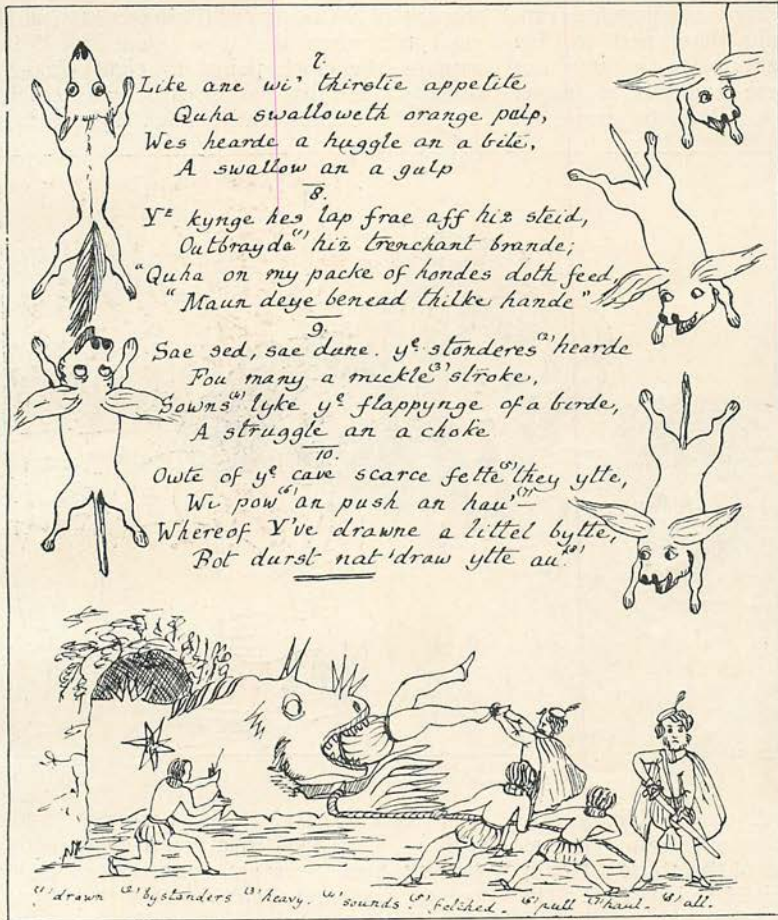 7.
Like ane wi' thirstie appetite
Quha swalloweth orange pulp,
Wes hearde a huggle an a bite,
A swallow an a gulp
8.
Yᵉ kynge hes lap frae aff hiz steid,
Outbrayde⁽¹⁾ hiz trenchant brande;
"Quha on my packe of hondes doth feed,
"Maun deye benead thilke hande"
9.
Sae sed, sae dune. yᵉ stonderes⁽²⁾ hearde
Fou many a mickle⁽³⁾ stroke,
Sowns⁽⁴⁾ lyke yᵉ flappynge of a birde,
A struggle an a choke
10.
Owte of yᵉ cave scarce fette⁽⁵⁾ they ytte,
Wi pow⁽⁶⁾ an push an hau'⁽⁷⁾—
Whereof Y've drawne a littel bytte,
Bot durst nat draw ytte au.⁽⁸⁾
⁽¹⁾drawn ⁽²⁾bystanders ⁽³⁾heavy. ⁽⁴⁾sounds. ⁽⁵⁾fetched. ⁽⁶⁾pull ⁽⁷⁾haul. ⁽⁸⁾all.